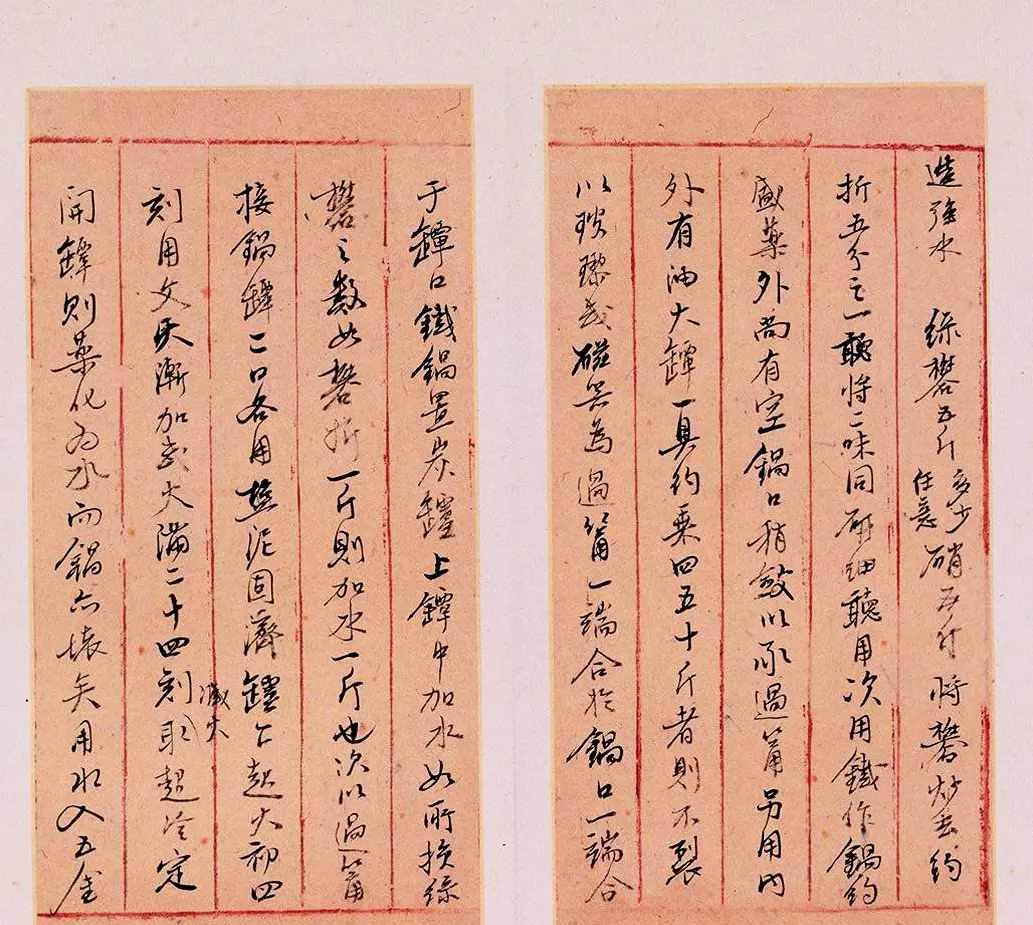 造強水　綠礬五斤多少任意硝五斤將礬炒去約
折五分之一聽將二味同研細聽用次用鐵作鍋約
盛藥外尚有空鍋口稍斂以承過筩另用內
外有油大罈一具約乘四五十斤者則不裂
以玻瓈或磁器為過筩一端合於鍋口一端合
于罈口鐵鍋置炭罏上罈中加水如所損綠
礬之數如礬折一斤則加水一斤也次以過筩
接鍋罈二口各用鹽泥固濟罏上起火初四
刻用文火漸加武火滿二十四刻減火取起冷定
開罈則藥化為水而鍋亦壞矣用水入五金